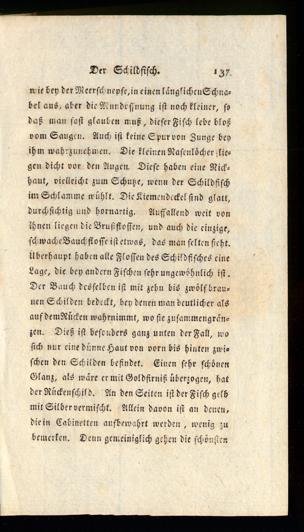 Der Schildfisch. 137
wie bey der Meerschnepfe, in einen länglichen Schna-
bel aus, aber die Mundöffnung ist noch kleiner, so
daß man fast glauben muß, dieser Fisch lebe bloß
vom Saugen. Auch ist keine Spur von Zunge bey
ihm wahrzunehmen. Die kleinen Nasenlöcher lie-
gen dicht vor den Augen. Diese haben eine Nick-
haut, vielleicht zum Schutze, wenn der Schildfisch
im Schlamme wühlt. Die Kiemendeckel sind glatt,
durchsichtig und hornartig. Auffallend weit von
ihnen liegen die Brustflossen, und auch die einzige,
schwache Bauchflosse ist etwas, das man selten sieht.
Überhaupt haben alle Flossen des Schildfisches eine
Lage, die bey andern Fischen sehr ungewöhnlich ist.
Der Bauch desselben ist mit zehn bis zwölf brau-
nen Schilden bedeckt, bey denen man deutlicher als
auf dem Rücken wahrnimmt, wo sie zusammengrän-
zen. Dieß ist besonders ganz unten der Fall, wo
sich nur eine dünne Haut von vorn bis hinten zwi-
schen den Schilden befindet. Einen sehr schönen
Glanz, als wäre er mit Goldfirniß überzogen, hat
der Rückenschild. An den Seiten ist der Fisch gelb
mit Silber vermischt. Allein davon ist an denen,
die in Cabinetten aufbewahrt werden, wenig zu
bemerken. Denn gemeiniglich gehen die schönsten